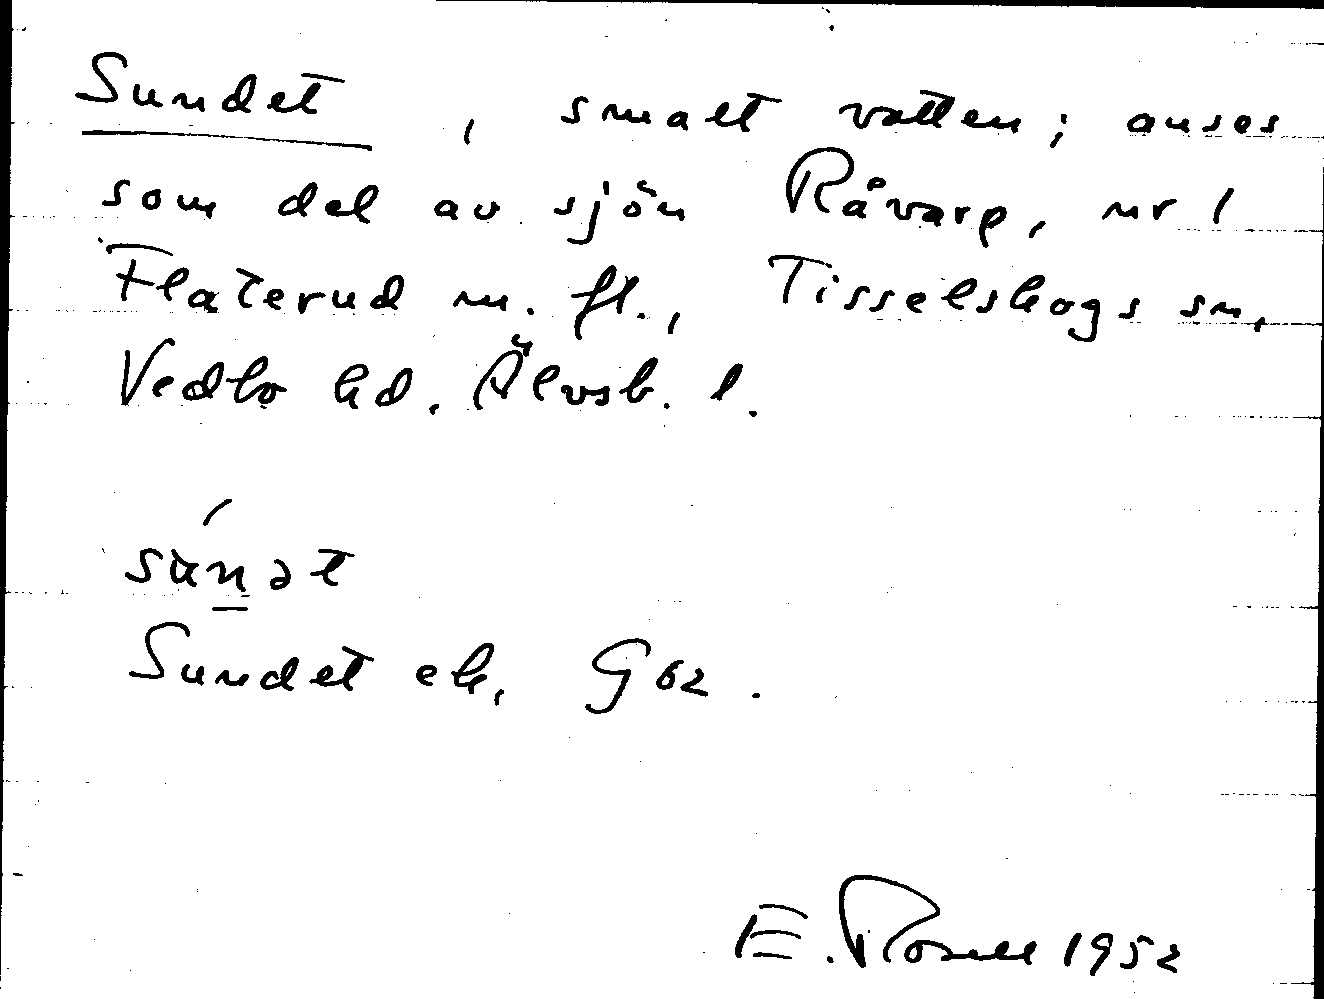 Sundet, smalt vatten; anses
som del av sjön Råvarp, nr 1
Flaterud m. fl., Tisselskogs sn,
Vedbo hd. Älvsb. l.
sùn̲ət
Sundet ek, G 62.
E. Rosell 1952